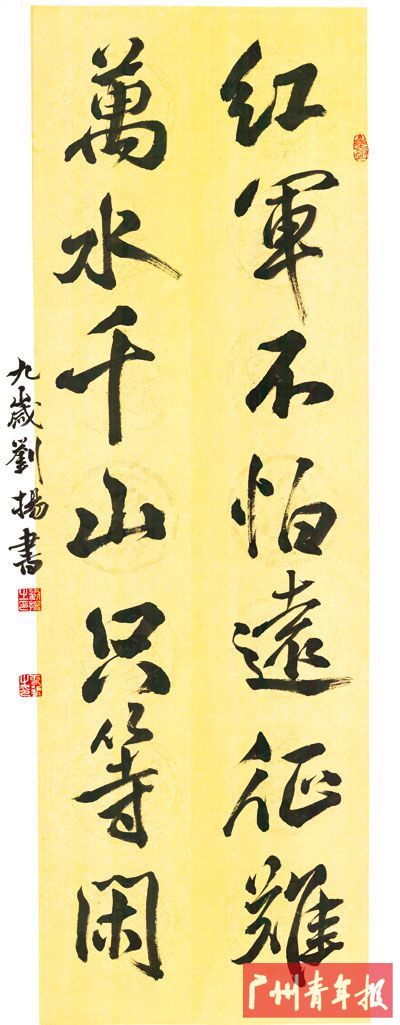 红軍不怕遠征難
萬水千山只等閑
九歲劉揚書
广州青年报